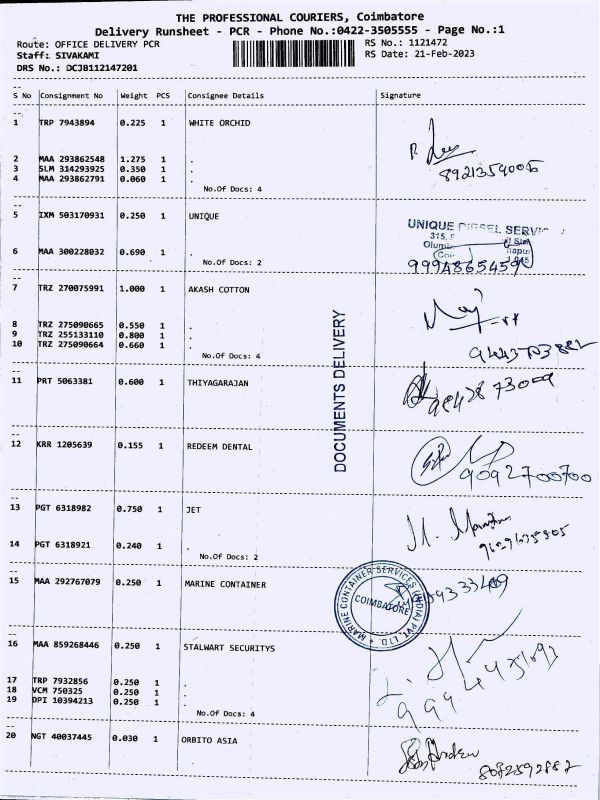 THE PROFESSIONAL COURIERS, Coimbatore
Delivery Runsheet - PCR - Phone No.:0422-3505555 - Page No.:1
Route: OFFICE DELIVERY PCR
RS No.: 1121472
Staff: SIVAKAMI
RS Date: 21-Feb-2023
DRS No.: DCJB112147201
S No Consignment No Weight PCS Consignee Details Signature
1 TRP 7943894 0.225 1 WHITE ORCHID
2 MAA 293862548 1.275 1 .
3 SLM 314293925 0.350 1 .
4 MAA 293862791 0.060 1 .
8921359006
No.Of Docs: 4
5 IXM 503170931 0.250 1 UNIQUE
UNIQUE DIESEL SERVIC
315,
6 MAA 300228032 0.690 1 .
No.Of Docs: 2
9994865459
7 TRZ 270075991 1.000 1 AKASH COTTON
8 TRZ 275090665 0.550 1 .
9 TRZ 255133110 0.800 1 .
10 TRZ 275090664 0.660 1 .
No.Of Docs: 4
DOCUMENTS DELIVERY
11 PRT 5063381 0.600 1 THIYAGARAJAN
12 KRR 1205639 0.155 1 REDEEM DENTAL
9092700700
13 PGT 6318982 0.750 1 JET
14 PGT 6318921 0.240 1 .
No.Of Docs: 2
15 MAA 292767079 0.250 1 MARINE CONTAINER
MARINE CONTAINER SERVICES (INDIA) PVT. LTD.
COIMBATORE
16 MAA 859268446 0.250 1 STALWART SECURITYS
17 TRP 7932856 0.250 1 .
18 VCM 750325 0.250 1 .
19 DPI 10394213 0.250 1 .
No.Of Docs: 4
20 NGT 40037445 0.030 1 ORBITO ASIA